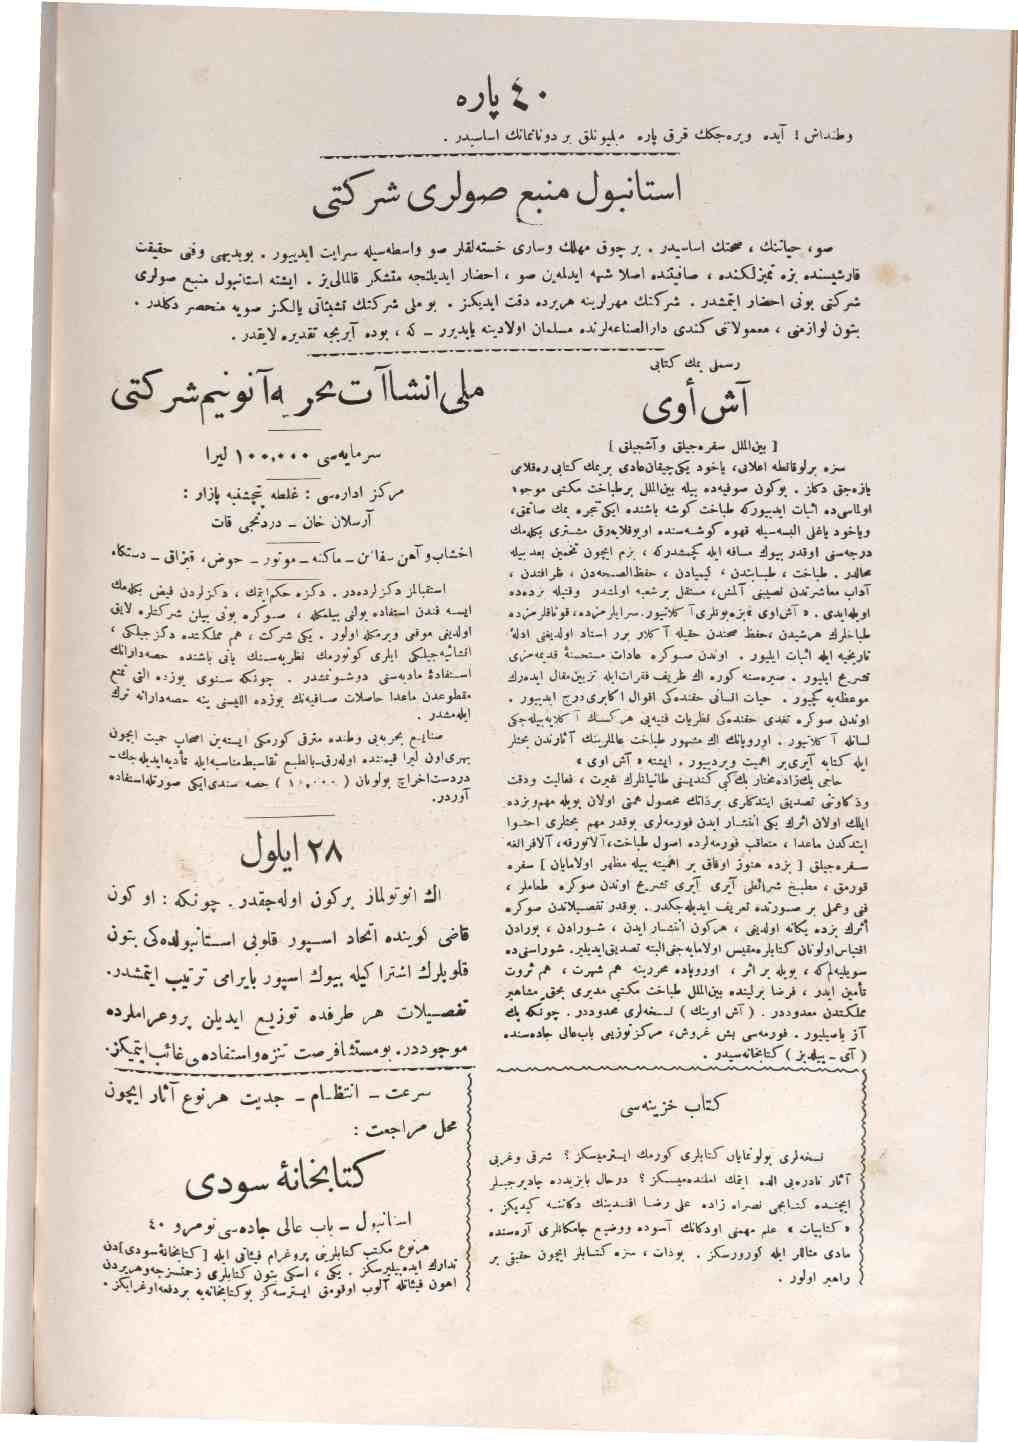 ٤٠ پاره
وطنداش ! آیده ویره‌جكك قرق پاره ملیونلق بر دوناتمانك اساسیدر .
استانبول منبع صولری شركتی
صو، حیاتنك ، صحتك اساسیدر . بر چوق مهلك وساری خسته‌لقلر صو واسطه‌سیله سرایت ایدییور . بوبدیهی وفنی حقیقت
قارشیسنده بزه تمیزلكنده ، صافیتنده اصلا شبهه ایدلمه‌ین صو ، احضار ایدیلنجه متشكر قالمالی‌یز . ایشته استانبول منبع صولری
شركتی بونی احضار ایتمشدر . شركتك مهرلرینه هریرده دقت ایدیكز . بو ملی شركتك تشبثاتی یالكز صویه منحصر دكلدر .
بتون لوازمنی ، معمولاتنی كندی دارالصناعه‌لرنده مسلمان اولادینه یاپدیرر ـ كه ، بوده آیریجه تقدیره لایقدر .
رسملی یمك كتابی
آش أوی
[ بین‌الملل سفره‌جیلق وآشجیلق ]
سزه برلوقانطه اعلانی، یاخود یكی‌چیقان‌عادی بریمك كتابی ره‌قلامی
یازه‌جق دكلز . بوكون صوفیه‌ده بیله بین‌الملل برطباخت مكتبی موجود
اولماسی‌ده اثبات ایدییوركه طباخت كوشه باشنده ایكی تنجره یمك صاتمق،
ویاخود یاغلی البسه‌سیله قهوه كوشه‌سنده اویوقلایه‌رق مشتری بكله‌مك
درجه‌سنی اوقدر بیوك مسافه ایله كچمشدركه ، بزم ایچون تخمین بعد بیله
محالدر . طباخت ، طبابتدن ، كیمیادن ، حفظ‌الصحه‌دن ، ظرافتدن ،
آداب معاشرتدن نصیبنی آلمش، مستقل برشعبه اولمشدر وقتیله بزده‌ده
اویله‌ایدی . « آش‌اوی » بزه‌بونلری آكلاتیور. سرایلرمزده، قوناقلرمزده
طباخلرك هرشیدن، حفظ صحتدن حقیله آكلار برر استاد اولدیغنی ادلۀ
تاریخیه ایله اثبات ایلیور . اوندن صوكره عادات مستحسنۀ قدیمه‌مزی
تشریح ایلیور . صیره‌سنه كوره اك ظریف فقرات‌ایله تزیین‌مقال ایده‌رك
موعظه‌یه كچیور . حیات انسانی حقنده‌كی اقوال اكابری‌درج ایدییور .
اوندن صوكره تغدی حقنده‌كی نظریات فنیه‌یی هركسك آكلایه‌بیله‌جكی
لسانله آكلاتیور . اوروپانك اك مشهور طباخت عالملرینك آثارندن بحثلر
ایله كتابه آیری‌بر اهمیت ویردییور . ایشته « آش اوی »
حاجی بك‌زاده‌مختار بك‌كبی كندیسنی طانیانلرك غیرت ، فعالیت ودقت
وذكاوتنی تصدیق ایتدكلری برذاتك محصول همتی اولان بویله مهم‌وبزده
ایلك اولان اثرك یكی انتشار ایدن فورمه‌لری بوقدر مهم بحثلری احتوا
ایتدكدن ماعدا ، متعاقب فورمه‌لرده اصول طباخت، آلاتورقه، آلافرانغه
سفره‌جیلق [ بزده هنوز اوفاق بر اهمیته بیله مظهر اولامایان ] سفره
قورمق ، مطبخ شرائطی آیری آیری تشریح اوندن صوكره طعاملر ،
فنی وعملی بر صورتده تعریف ایدیله‌جكدر . بوقدر تفصیلاتدن صوكره
أثرك بزده یكانه اولدیغنی ، هركون انتشار ایدن ، شورادن ، بورادن
اقتباس‌اولونان كتابلره‌مقیس اولامایه‌جغنی‌البته تصدیق‌ایدیلیر. شوراسنی‌ده
سویلیه‌لم‌كه ، بویله بر اثر ، اوروپاده محررینه هم شهرت ، هم ثروت
تأمین ایدر ، فرضا برلینده بین‌الملل طباخت مكتبی مدیری بحق مشاهیر
مملكتدن معدوددر . ( آش اوینك ) نسخه‌لری محدوددر . چونكه پك
آز باصیلیور . فورمه‌سی بش غروش، مركز توزیعی باب‌عالی جاده‌سنده
( آی ـ ییلدیز ) كتابخانه‌سیدر .
كتاب خزینه‌سی
نسخه‌لری بولونمایان كتابلری كورمك ایسترمیسكز ؟ شرقی وغربی
آثار نادره‌یی الده ایتمك املنده‌میسكز ؟ درحال بایزیدده چادیرجیلر
ایچنده كتابجی نصراه زاده علی رضا افندینك دكاننه كیدیكز .
« كتابیات » علم مهمنی اودكانك آسوده ووضیع جامكانلری آره‌سنده
مادی مثاللر ایله كورورسكز . بوذات ، سزه كتابلر ایچون حقیقی بر
راهبر اولور .
ملی انشاآت بحریه آنونیم شركتی
سرمایه‌سی ۱۰۰,۰۰۰ لیرا
مركز اداره‌سی : غلطه پنچشنبه پازار :
آرسلان خان ـ دردنجی قات
اخشاب وآهن سفائن ـ ماكنه ـ موتور ـ حوض، قیزاق ـ دستكاه
استقبالمز دكزلرده‌در . دكزه حكم‌ایتمك ، دكزلردن فیض بكله‌مك
ایسه فندن استفاده یولنی بیلمكله ، صوكره بونی بیلن شركتلره لایق
اولدیغی موقعی ویرمكله اولور . یكی شركت ، هم مملكتده دكزجیلكی ،
انشائیه‌جیلكی ایلری كوتورمك نظریه‌سنك یانی باشنده حصه‌دارانك
استفادۀ مادیه‌سنی دوشونمشدر . چونكه سنوی یوزده التی تمتع
مقطوعدن ماعدا حاصلات صافیه‌نك یوزده اللیسنی ینه حصه‌دارانه ترك
ایله‌مشدر .
صنایع بحریه‌یی وطنده مترقی كورمكی ایسته‌ین اصحاب حمیت ایچون
بهری‌اون لیرا قیمتنده اوله‌رق‌ـ‌بالطبع تقاسیط‌مناسبه‌ایله تأدیه‌ایدیله‌جك‌ـ
دردست‌اخراج بولونان ( ۱۰,۰۰۰ ) حصه سندی‌ایكی صورتله‌استفاده
آوردر.
۲۸ ایلول
اك انوتولماز بركون اوله‌جقدر . چونكه : او كون
قاضی كوینده اتحاد اسپور قلوبی استانبولده‌كی بتون
قلوبلرك اشتراكیله بیوك اسپور بایرامی ترتیب ایتمشدر.
تفصیلات هر طرفده توزیع ایدیلن پروغراملرده
موجوددر. بومستثنا فرصت تنزه واستفاده‌یی غائب‌ایتمیكز.
سرعت ـ انتظام ـ جدیت هرنوع آثار ایچون
محل مراجعت :
كتابخانۀ سودی
استانبول ـ باب عالی جاده‌سی نومرو ٤٠
هرنوع مكتب كتابلرینی پروغرام فیئاتی ایله [كتابخانۀ سودی]دن
تدارك ایده‌بیلیرسكز . یكی ، اسكی بتون كتابلری زحمتسزجه‌وهریردن
اهون فیئاتله آلوب اوقومق ایسترسه‌كز بوكتابخانه‌یه بردفعه‌اوغرایكز .